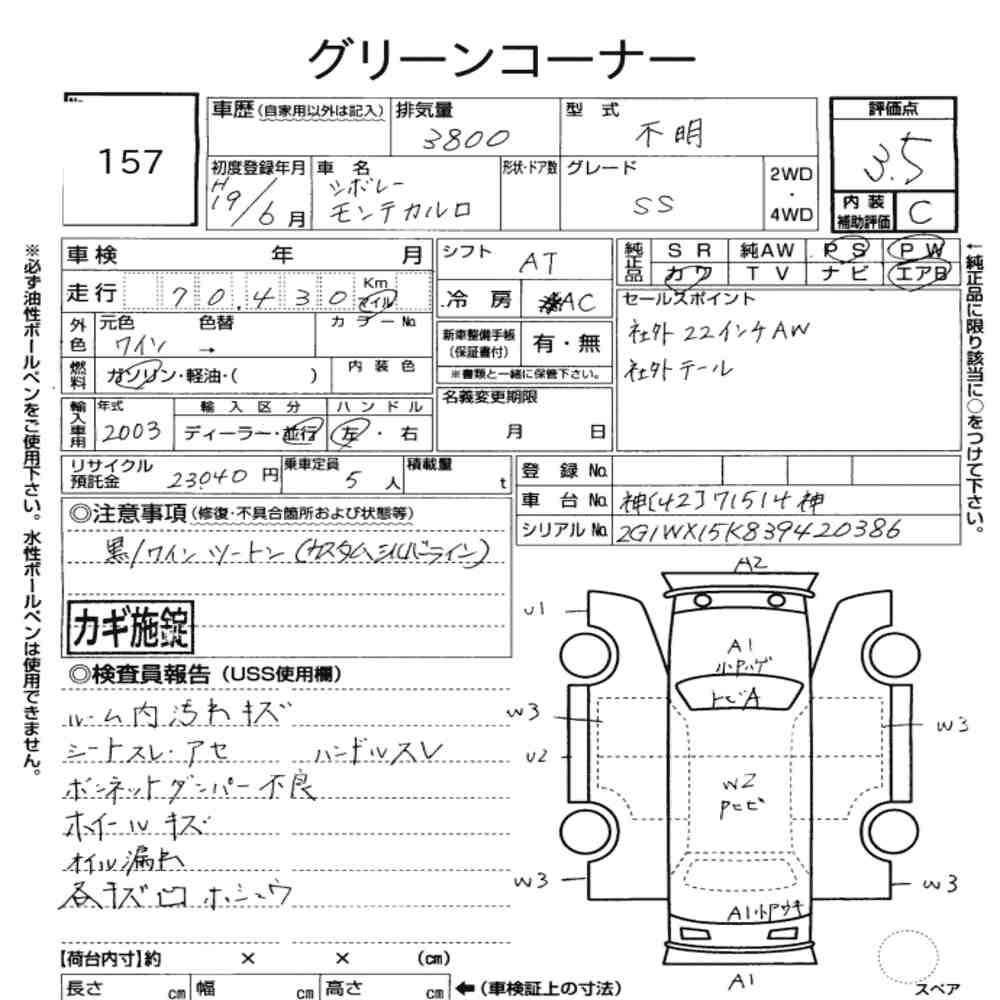 グリーンコーナー
157
車歴(自家用以外は記入)
排気量
3800
型 式
不明
評価点
3.5
内装補助評価
C
初度登録年月
H19/6月
車 名
シボレー
モンテカルロ
形状・ドア数
グレード
SS
2WD
・
4WD
車検 年 月
走行 70,430 Km マイル
外色
元色
ワイン →
色替
カラーNo.
燃料
ガソリン・軽油・( )
内装色
輸入車用
年式
2003
輸入区分
ディーラー・並行
ハンドル
左・右
シフト
AT
冷房
AC
新車整備手帳
(保証書付)
有・無
※書類と一緒に保管下さい。
名義変更期限
月 日
純正品
SR 純AW PS PW
カワ TV ナビ エアB
セールスポイント
社外 22インチAW
社外テール
リサイクル預託金
23040 円
乗車定員
5 人
積載量
t
登 録 No.
車 台 No. 神[42]71514神
シリアルNo. 2G1WX15K839420386
◎注意事項(修復・不具合箇所および状態等)
黒/ワイン ツートン(カスタムシルバーライン)
カギ施錠
◎検査員報告(USS使用欄)
ルーム内汚れキズ
シートスレ・アセ ハンドルスレ
ボンネットダンパー不良
ホイールキズ
オイル漏れ
各キズ凹 ホシュウ
【荷台内寸】約 × × (cm)
長さ cm 幅 cm 高さ cm
←(車検証上の寸法)
A2
U1
A1
小アハゲ
トビA
W3
W3
U2
W2
Pヒビ
W3
W3
A1小アウキ
A1
スペア
※必ず油性ボールペンをご使用下さい。水性ボールペンは使用できません。
←純正品に限り該当に○をつけて下さい。